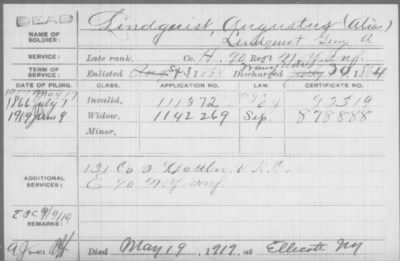 DEAD
NAME OF SOLDIER: Lindquist, Augustus (Alias)
Lindquist Guy A
SERVICE: Late rank, Co. A, 90 Reg't N.Y. Inf.
TERM OF SERVICE: Enlisted Discharged 1864
DATE OF FILING. CLASS. APPLICATION NO. LAW. CERTIFICATE NO.
1866 July 7 Invalid, 111372 92319
1919 June 9 Widow, 1142269 Sep. 878888
Minor,
ADDITIONAL SERVICES: 131 Co 2 Battln V.R.C.
E 90 NY Inf
REMARKS:
Died May 19, 1919, at Ellicott NY